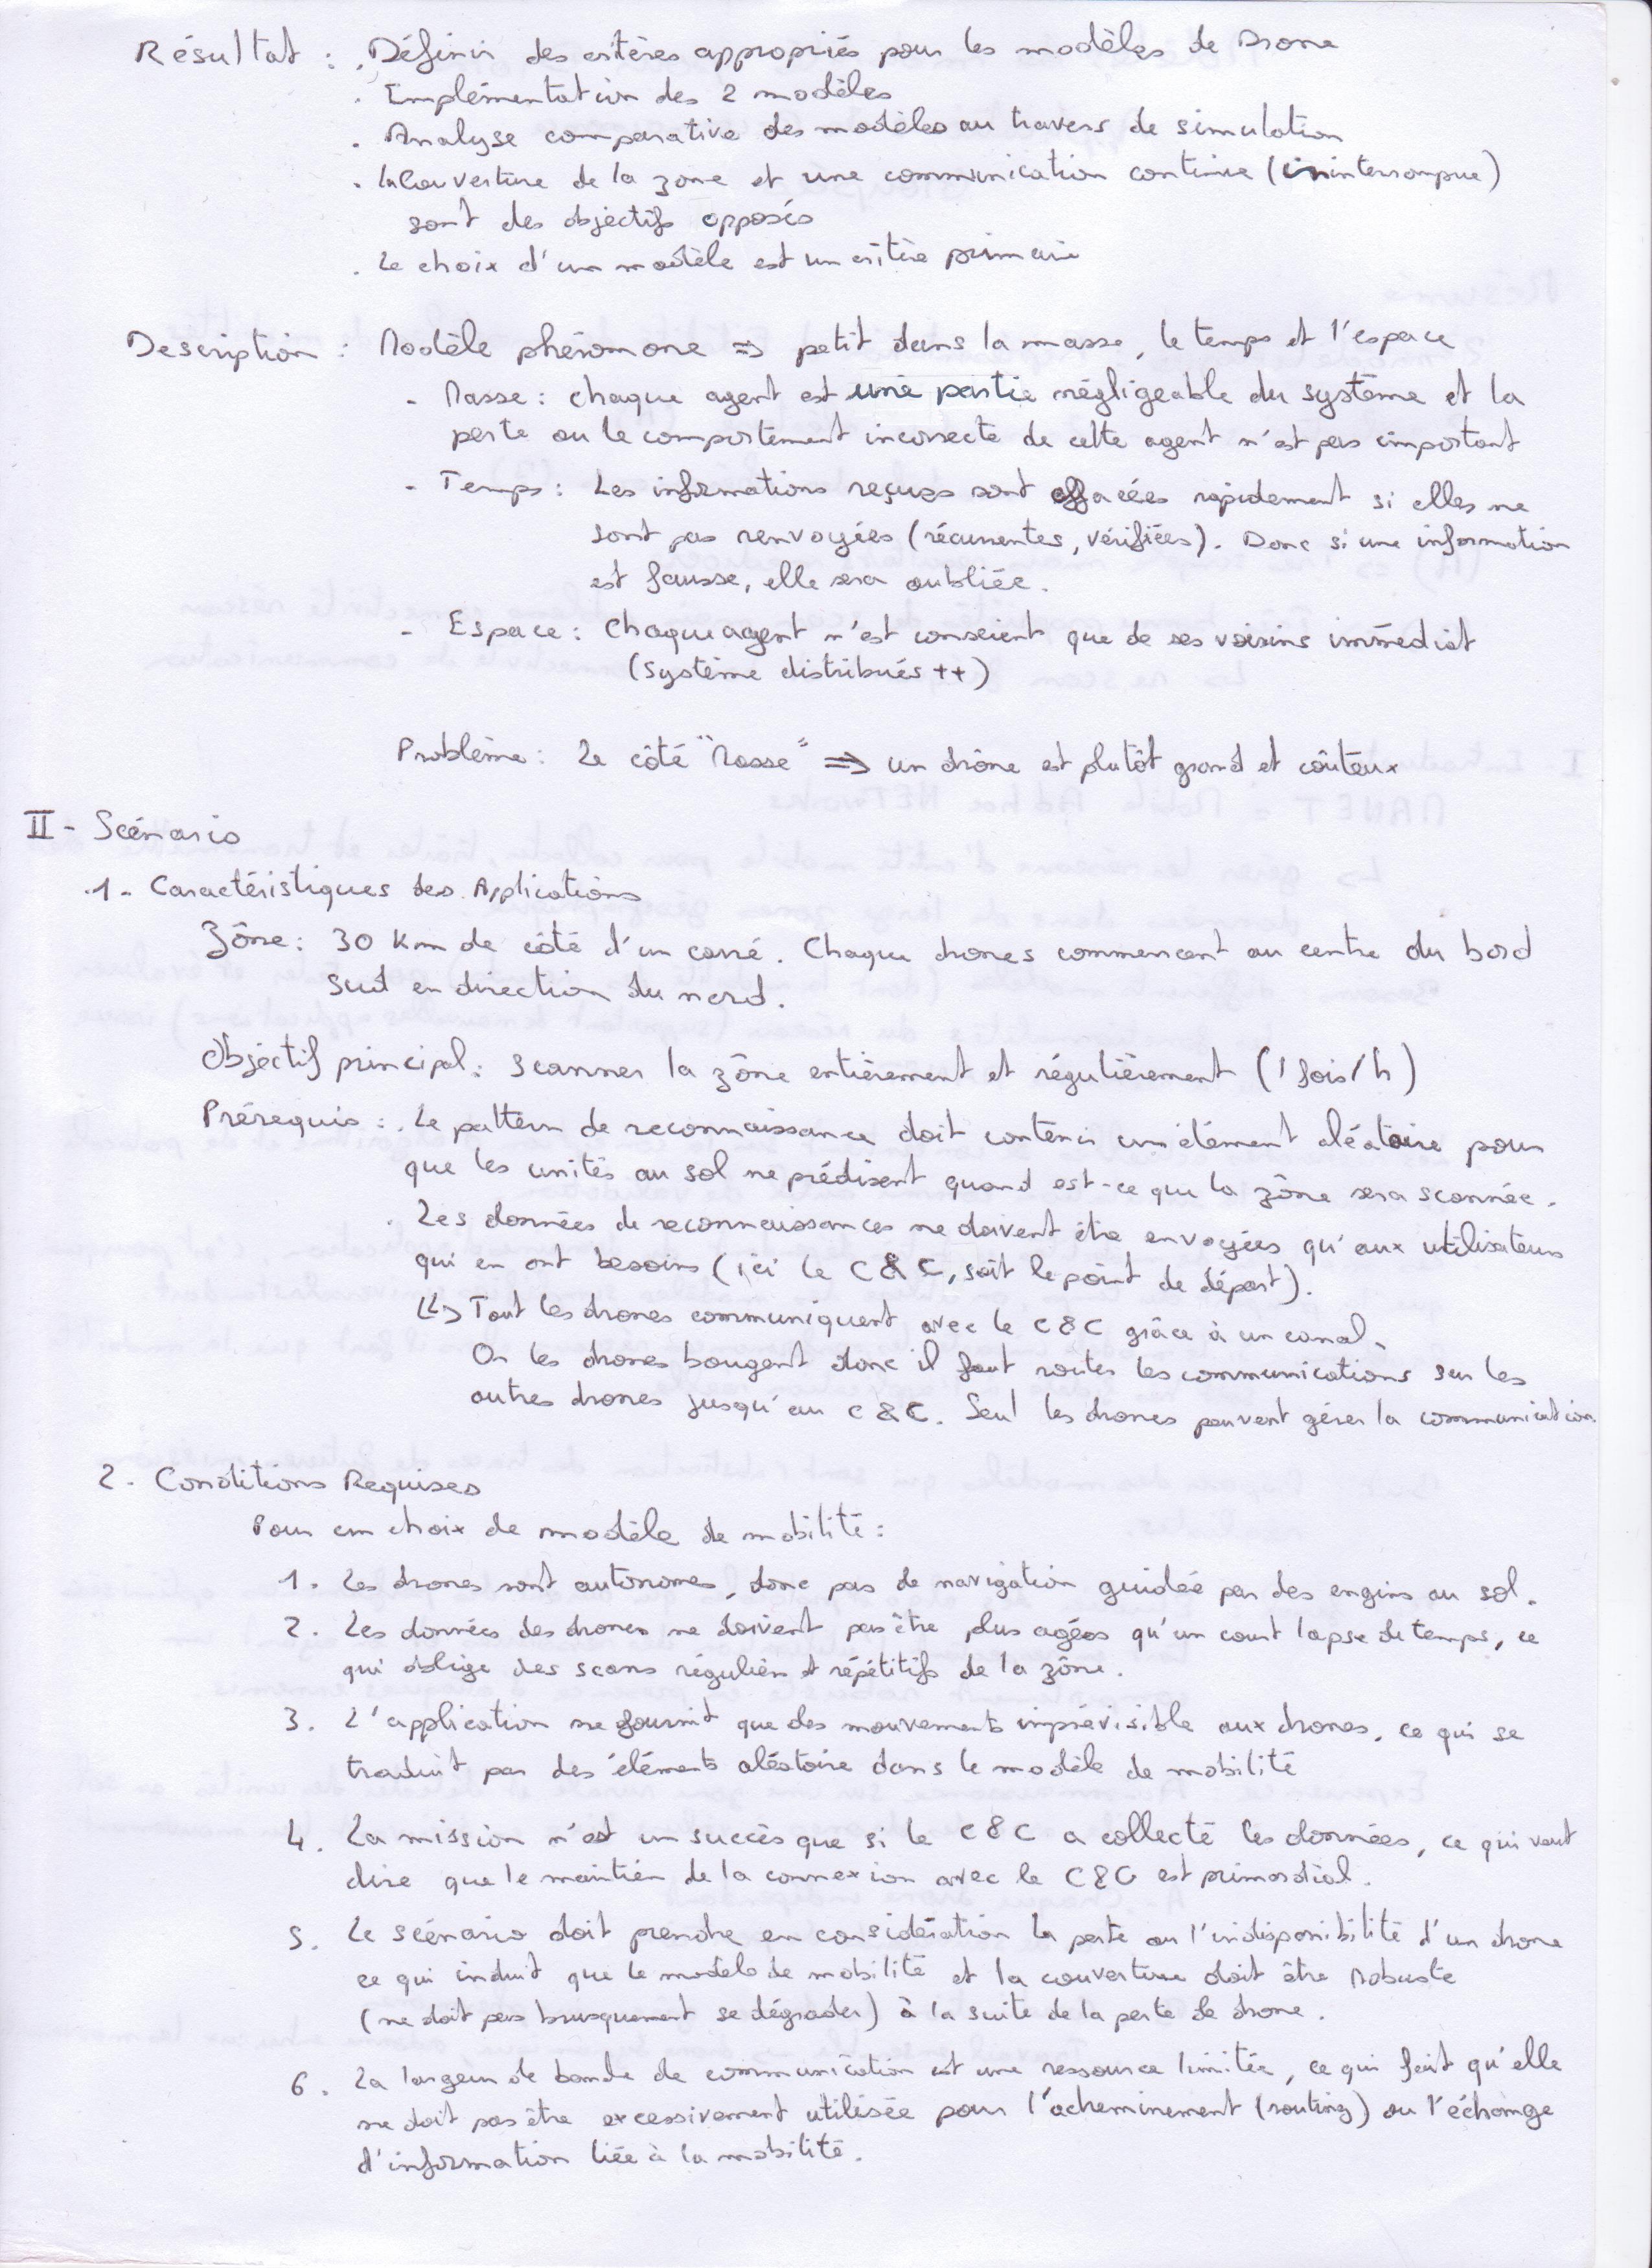 Résultat : . Définir des critères appropriés pour les modèles de Drone
. Implémentation des 2 modèles
. Analyse comparative des modèles au travers de simulation
. la couverture de la zone et une communication continue (inininterrompue)
sont des objectifs opposés
. Le choix d'un modèle est un critère primaire
Description : Modèle phéromone => petit dans la masse, le temps et l'espace
- Masse : chaque agent est une partie négligeable du système et la
perte ou le comportement incorrecte de cette agent n'est pas important
- Temps : Les informations reçues sont effacées rapidement si elles ne
sont pas renvoyées (récurrentes, vérifiées). Donc si une information
est fausse, elle sera oubliée.
- Espace : Chaque agent n'est conscient que de ses voisins immédiat
(système distribués ++)
Problème : Le côté "Masse" => un drône est plutôt grand et coûteux
II - Scénario
.1 - Caractéristiques des Applications
Zône : 30 Km de côté d'un carré. Chaque drones commencent au centre du bord
sud en direction du nord.
Objectif principal : scanner la zône entièrement et régulièrement (1 fois/h)
Prérequis : . Le pattern de reconnaissance doit contenir un élément aléatoire pour
que les unités au sol ne prédisent quand est-ce que la zône sera scannée.
. Les données de reconnaissances ne doivent être envoyées qu'aux utilisateurs
qui en ont besoins (ici le C&C, soit le point de départ).
↳ Tout les drones communiquent avec le C&C grâce à un canal.
Or les drones bougent donc il faut router les communications sur les
autres drones jusqu'au C&C. Seul les drones peuvent gérer la communication.
2 - Conditions Requises
Pour un choix de modèle de mobilité :
1. Les drones sont autonomes, donc pas de navigation guidée par des engins au sol.
2. Les données des drones ne doivent pas être plus agées qu'un court lapse de temps, ce
qui oblige des scans régulièrs et répétitifs de la zône.
3. L'application ne fournit que des mouvements imprévisible aux drones, ce qui se
traduit par des éléments aléatoire dans le modèle de mobilité
4. La mission n'est un succès que si le C&C a collecté les données, ce qui veut
dire que le maintien de la connexion avec le C&C est primordial.
5. Le scénario doit prendre en considération la perte ou l'indisponibilité d'un drone
ce qui induit que le modèle de mobilité et la couverture doit être Robuste
(ne doit pas brusquement se dégrader) à la suite de la perte de drone.
6. La largeur de bande de communication est une ressource limitée, ce qui fait qu'elle
ne doit pas être excessivement utilisée pour l'acheminement (routing) ou l'échange
d'information liée à la mobilité.